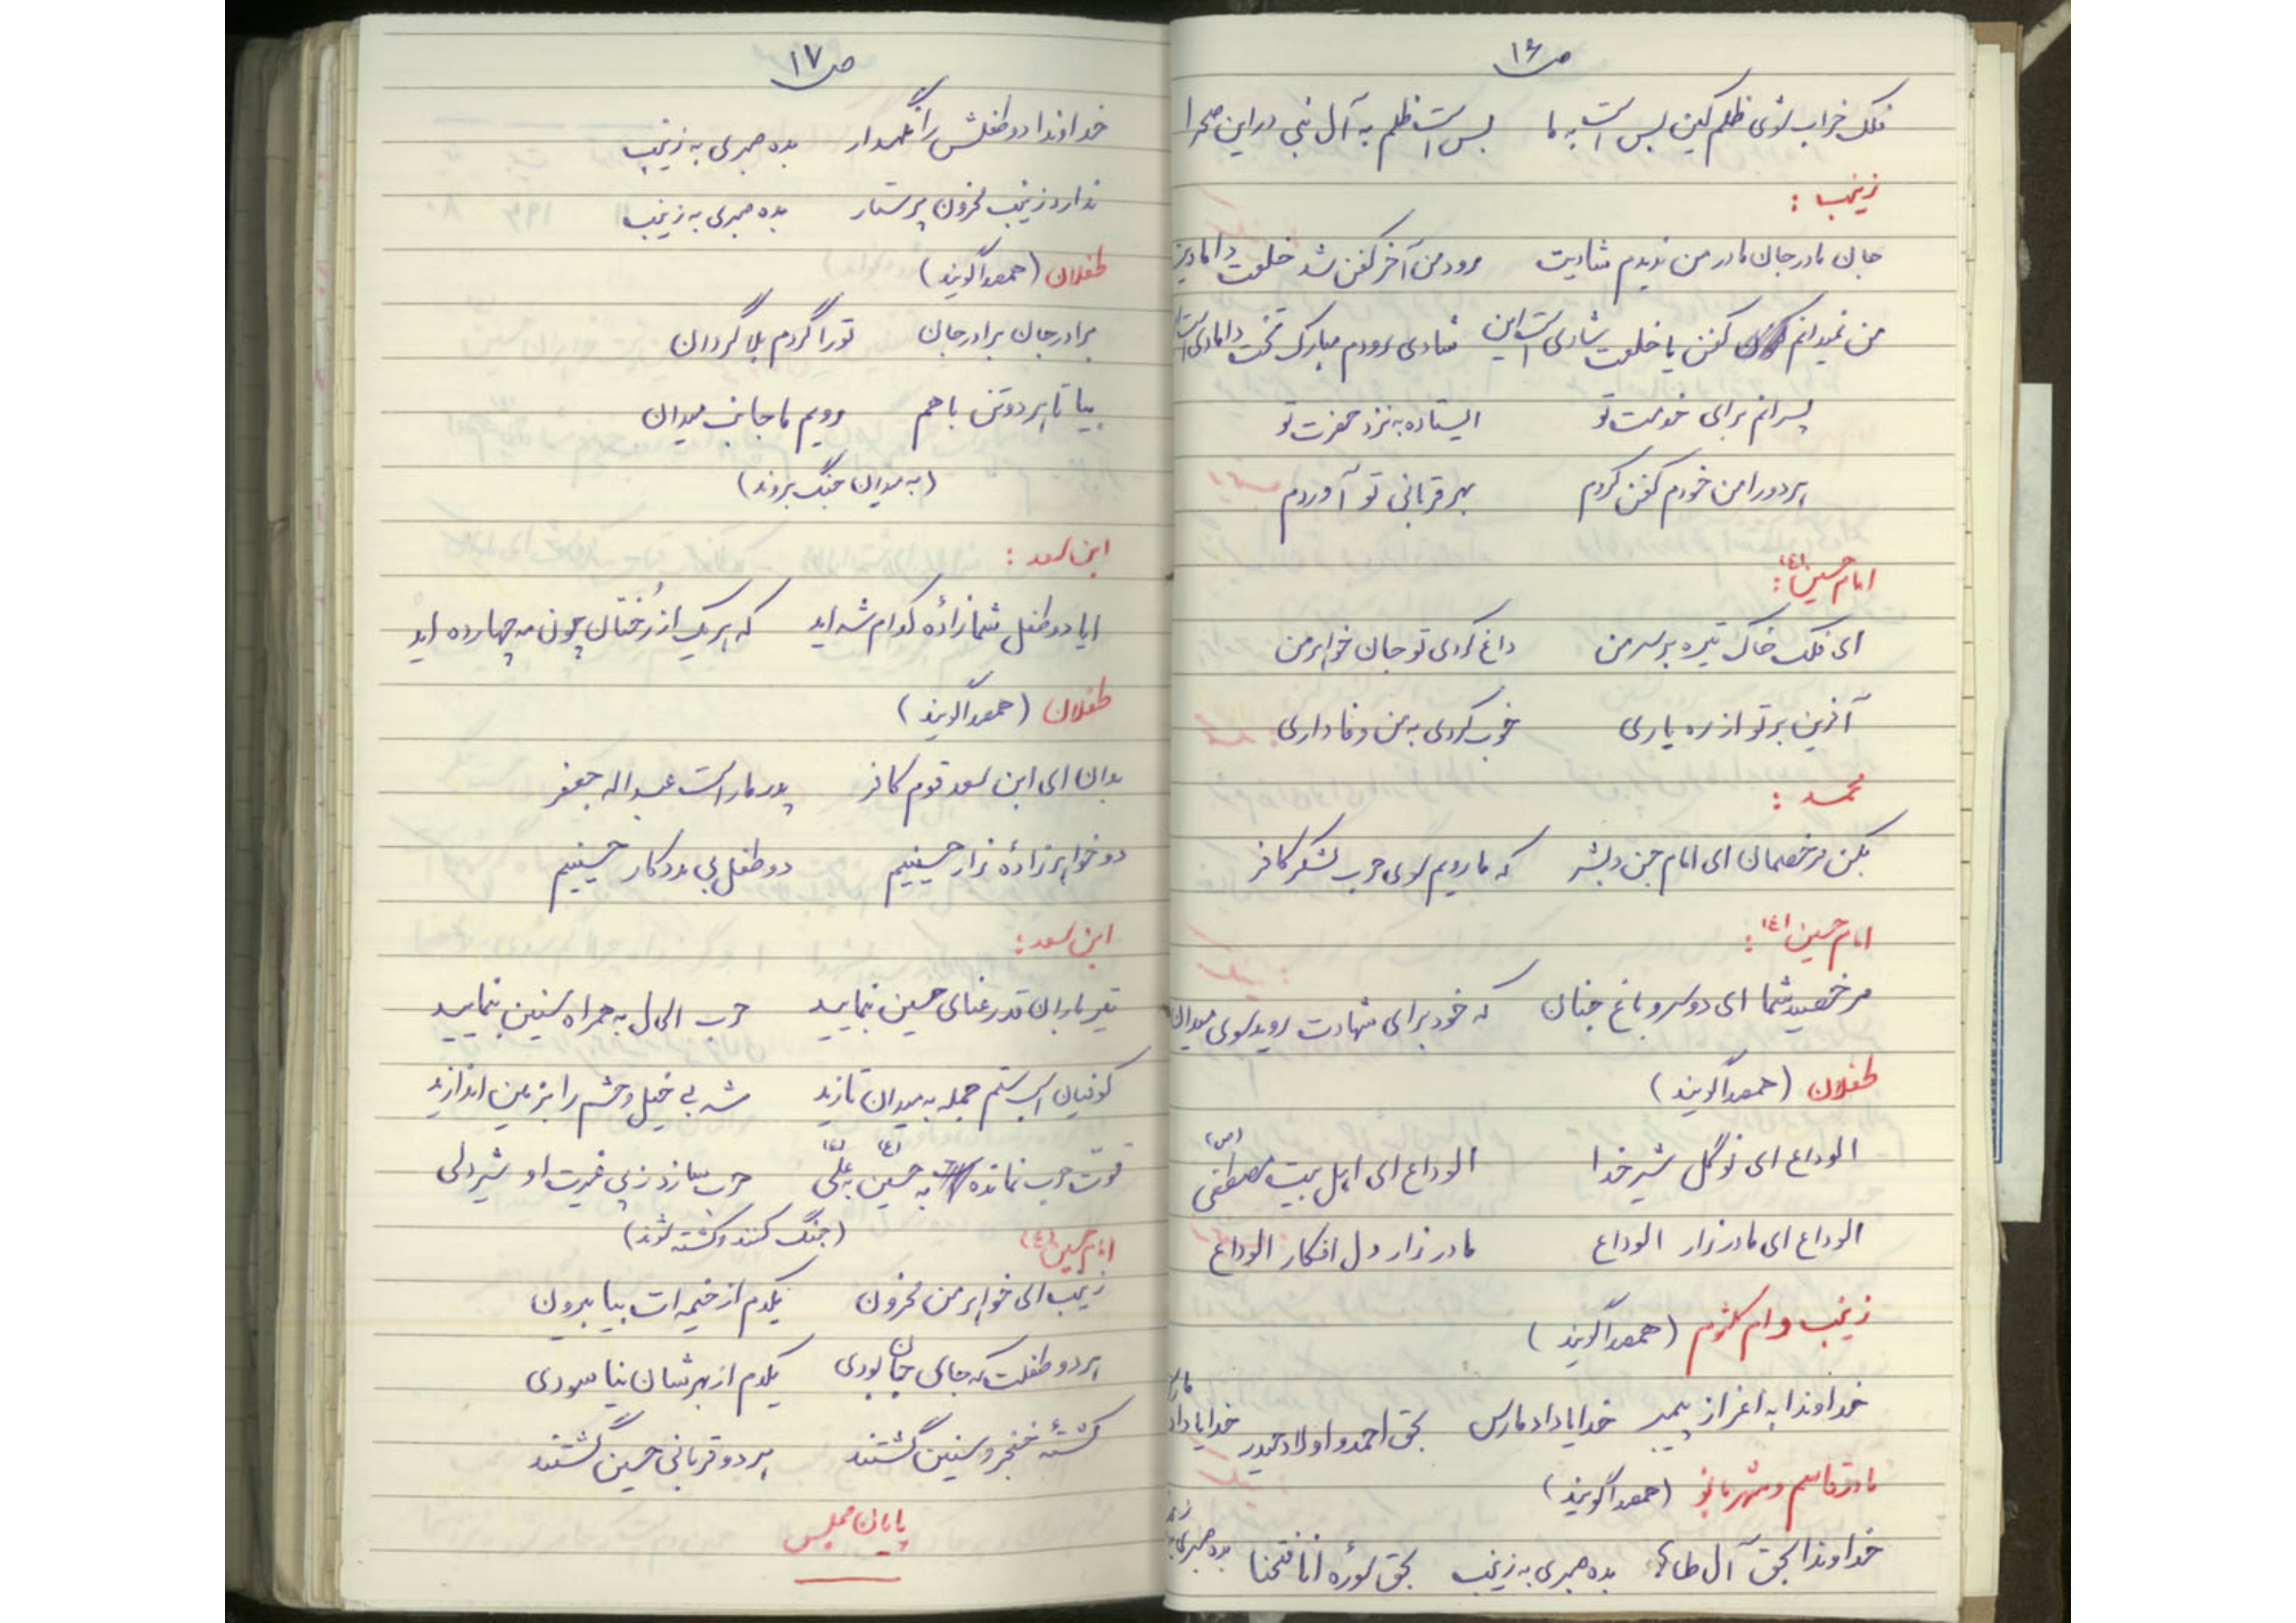 ص ۱۶
فلک خراب شوی ظلم کین بس است به ما بس است ظلم به آل نبی در این صحرا
زینب :
جان مادر جان مادر من ندیدم شادیت رود من آخر کفن شد خلعت دامادیت
من نمیدانم کفن یا خلعت شادی است این شادی رودم مبارک تخت دامادی است
پسرانم برای خدمت تو ایستاده به نزد حضرت تو
هر دو را من خودم کفن کردم بهر قربانی تو آوردم
امام حسین (ع) :
ای فلک خاک تیره بر سر من داغ کردی تو جان خواهر من
آفرین بر تو از ره یاری خوب کردی به من وفاداری
محمد :
بکن مرخصمان ای امام جن و بشر که ما رویم سوی حرب لشکر کافر
امام حسین (ع) :
مرخصید شما ای دو سرو باغ جنان که خود برای شهادت روید سوی میدان
طفلان (همصدا گویند)
الوداع ای نوگل شیر خدا الوداع ای اهل بیت مصطفی (ص)
الوداع ای مادر زار الوداع مادر زار دل افکار الوداع
زینب و ام کلثوم (همصدا گویند)
خداوندا به اعزاز پیمبر خدایا داد ما رس بحق احمد و اولاد حیدر خدایا داد ما رس
مادر قاسم و شهربانو (همصدا گویند)
خداوندا بحق آل طاها بده صبری به زینب بحق سورهٔ انا فتحنا بده صبری به زینب
ص ۱۷
خداوندا دو طفلش را نگهدار بده صبری به زینب
ندارد زینب محزون پرستار بده صبری به زینب
طفلان (همصدا گویند)
برادر جان برادر جان تو را گردم بلا گردان
بیا تا هر دو تن با هم رویم ما جانب میدان
(به میدان جنگ بروند)
ابن سعد :
ایا دو طفل شما زادهٔ کدام شه اید که هر یک از رُختان چون مه چهارده اید
طفلان (همصدا گویند)
بدان ای ابن سعد قوم کافر پدر ما راست عبداله جعفر
دو خواهر زادهٔ زار حسینیم دو طفل بی مددکار حسینیم
ابن سعد :
تیر باران قد رعنای حسین بنمایید حرب ال ال به همراه سنین بنمایید
کوفیان اسب ستم جمله به میدان تازید شه بی خیل و حشم را بزمین اندازید
قوّت حرب نمانده به حسین (ع) بن علّی (ع) حرب سازد ز پی غیرت او شیر دلی
(جنگ کنند و کشته شوند)
امام حسین (ع)
زینب ای خواهر من محزون یکدم از خیمه ات بیا بیرون
هر دو طفلت که جای جان بودی یکدم از بهرشان نیاسودی
کشتهٔ خنجر و سنین گشتند هر دو قربانی حسین گشتند
پایان مجلس